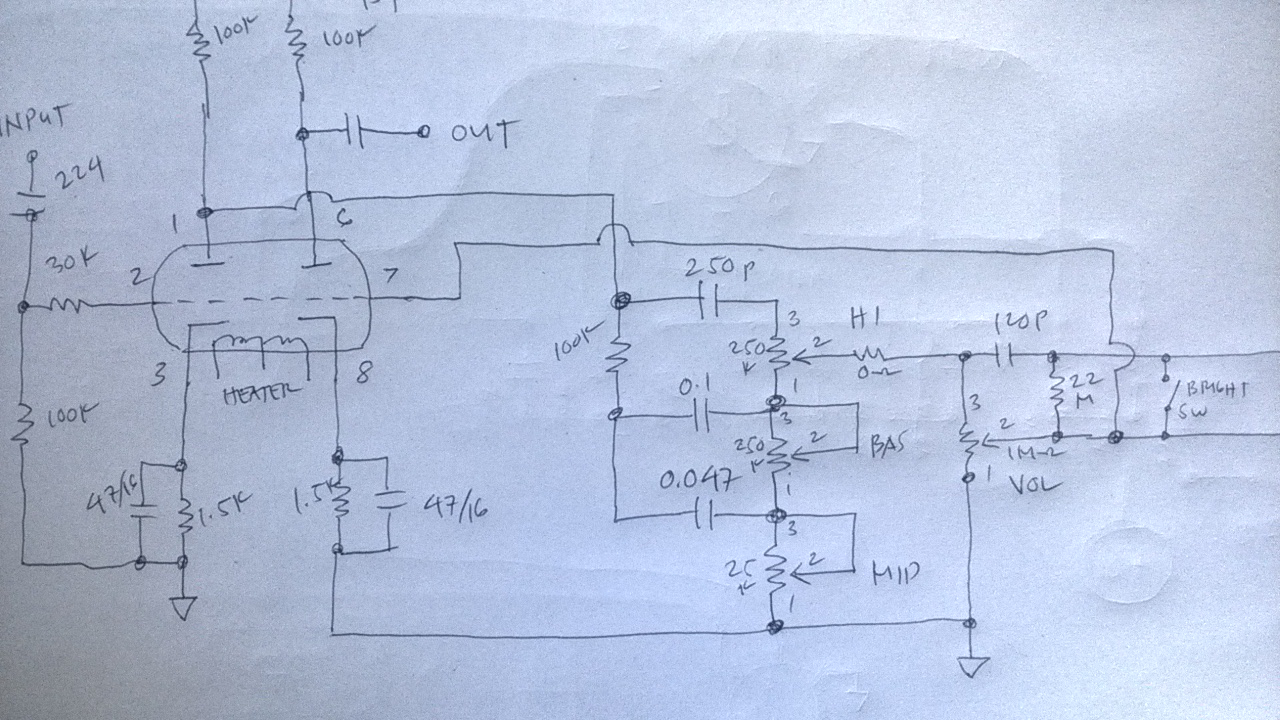 100K
100K
INPUT
224
OUT
1
6
30K
2
7
250P
3
HI
120P
100K
250
K
2
0Ω
3
8
HEATER
1
22
M
BRIGHT
SW
0.1
3
3
100K
250
K
2
BAS
2
1MΩ
1
VOL
47/16
1.5K
1.5K
47/16
0.047
1
3
25
K
2
MID
1